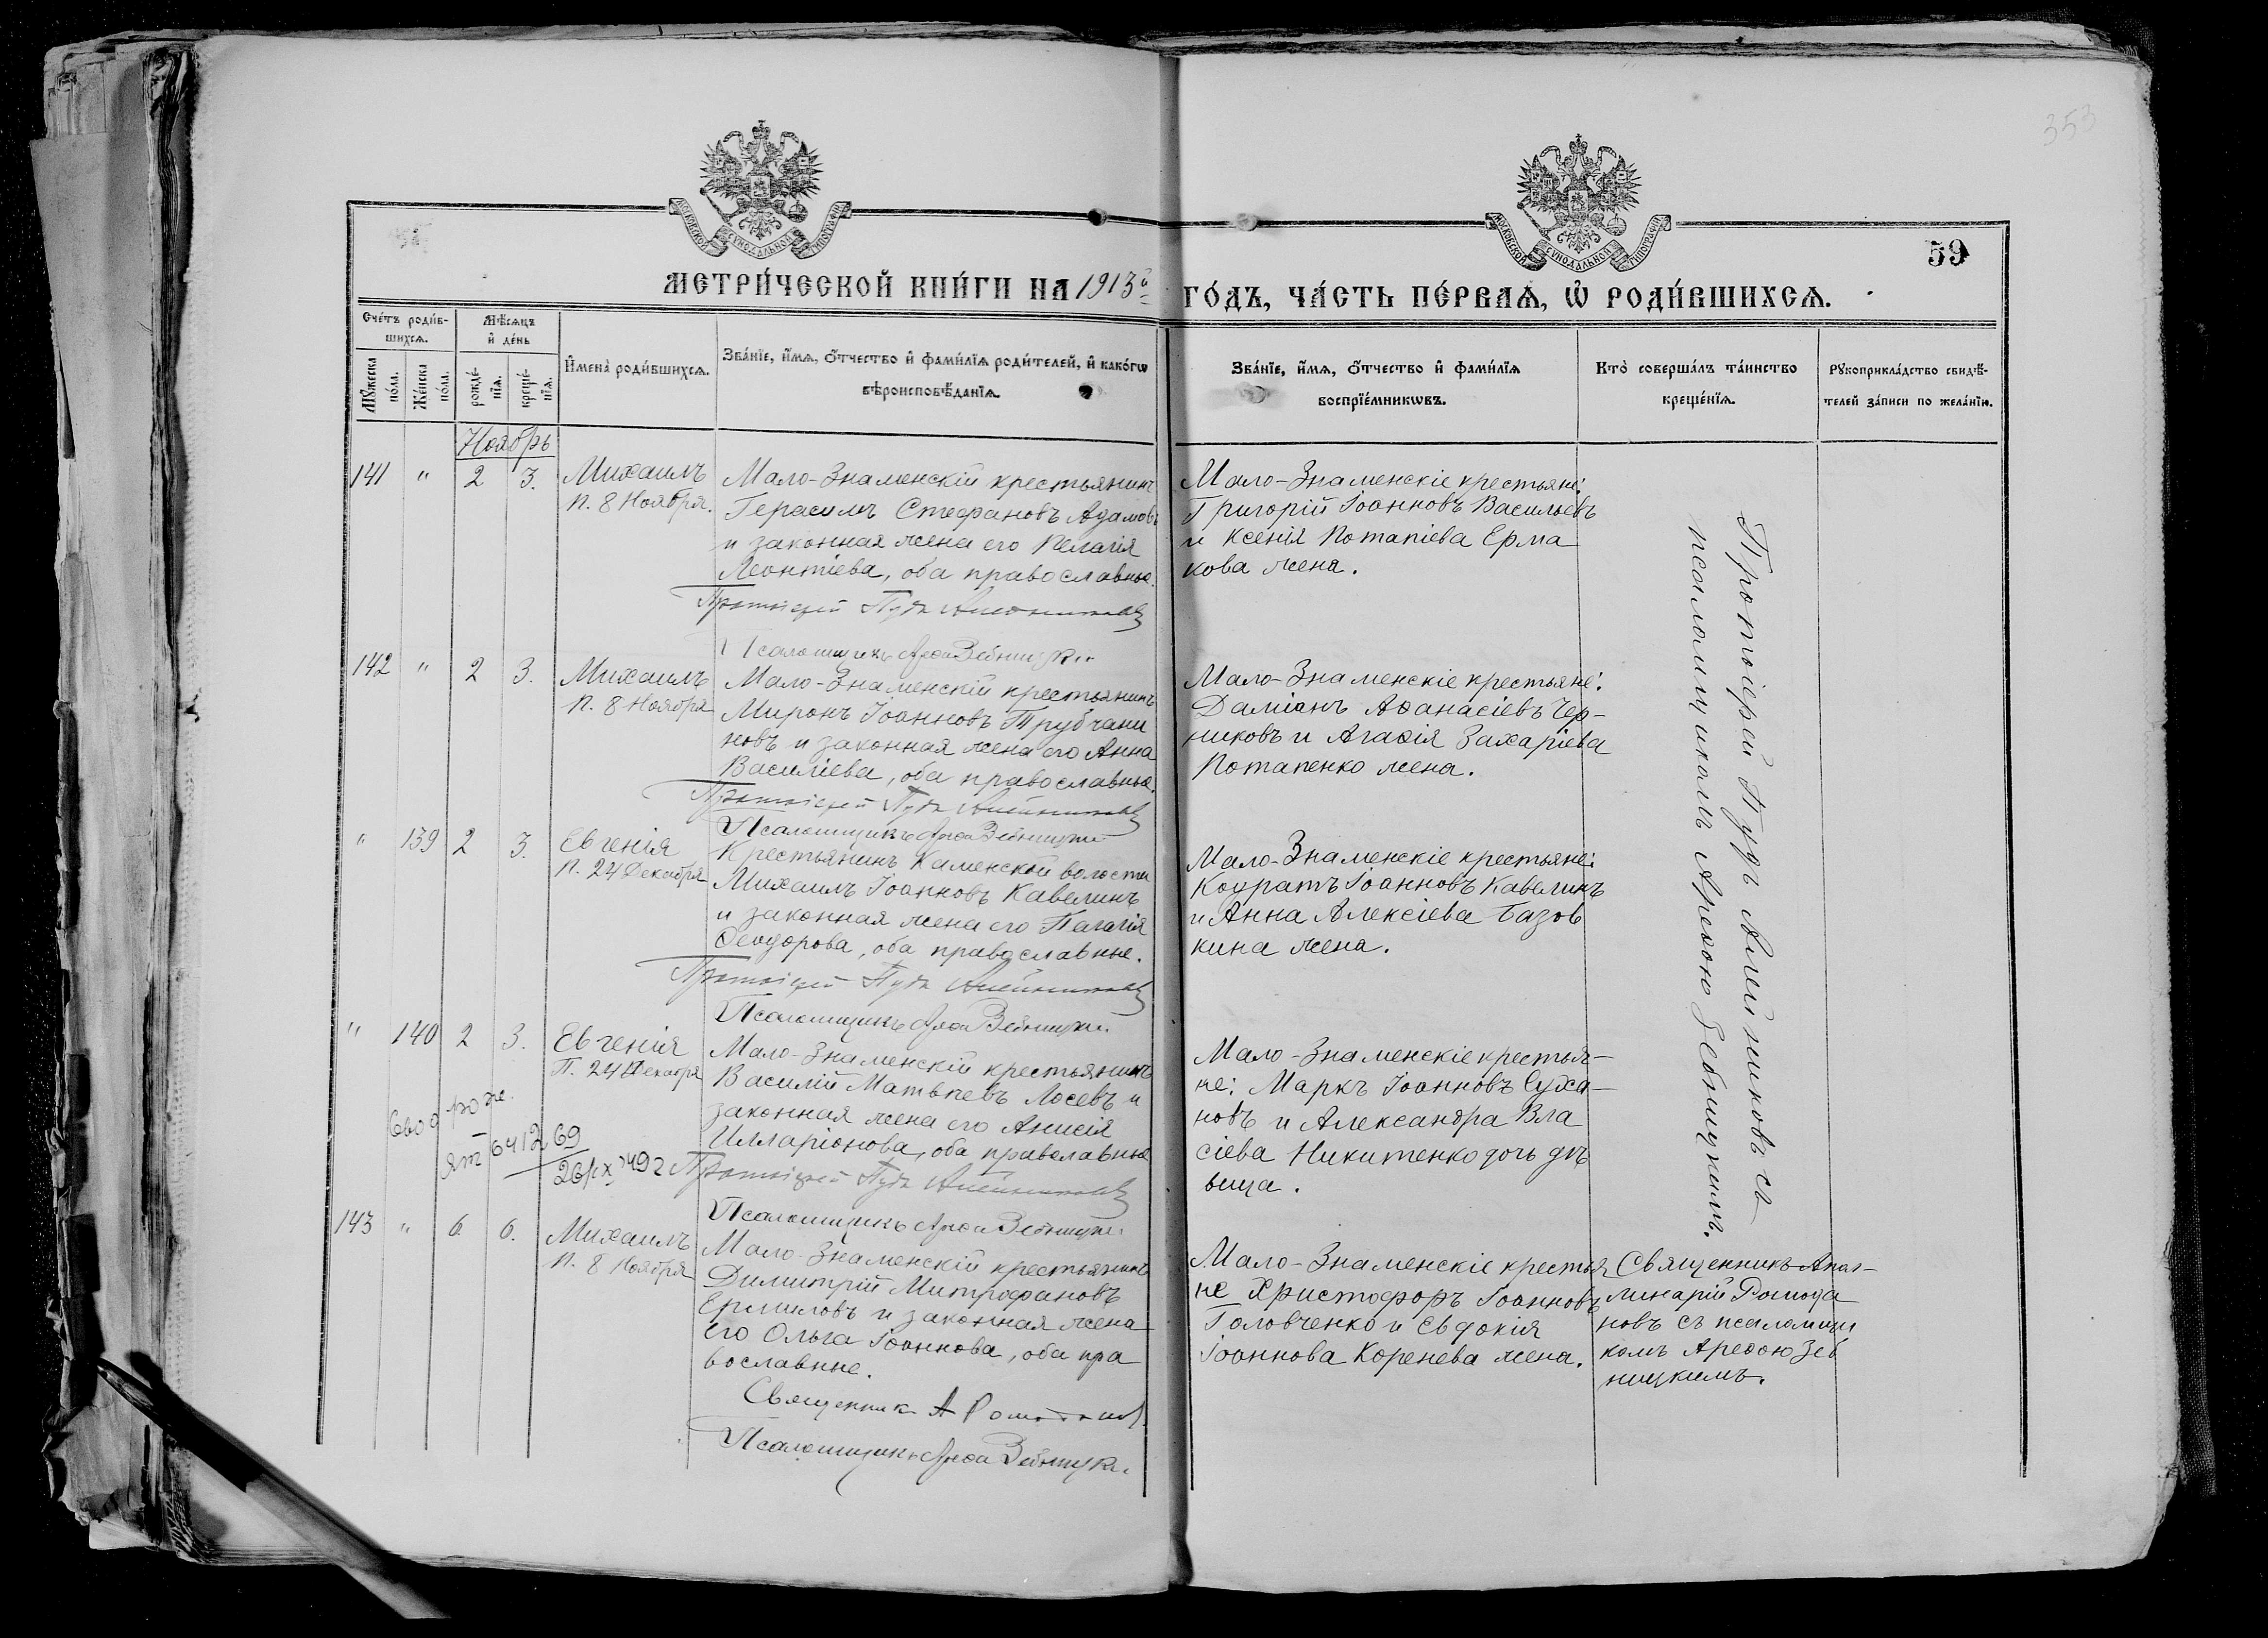 353
МОСКОВСКОЙ СУНОДАЛЬНОЙ ТИПОГРАФІИ
МОСКОВСКОЙ СУНОДАЛЬНОЙ ТИПОГРАФІИ
59
МЕТРИ́ЧЕСКОЙ КНИ́ГИ НА 1913й ГО́ДЪ, ЧА́СТЬ ПЕ́РВАѦ, Ѡ҆ РОДИ́ВШИХСѦ.
Сче́тъ роди́в-
шихсѧ.
Мꙋ́жеска по́ла.
Же́нска по́ла.
Мѣ́сѧцъ
и҆ де́нь
рожде́-
нїѧ.
креще́-
нїѧ.
И҆мена̀ роди́вшихсѧ.
Зва́нїе, и҆́мѧ, ѻ҆́тчество и҆ фами́лїѧ роди́телей, и҆ како́гѡ
вѣроисповѣ́данїѧ.
Зва́нїе, и҆́мѧ, ѻ҆́тчество и҆ фами́лїѧ
воспрїе́мникѡвъ.
Кто̀ соверша́лъ та́инство
креще́нїѧ.
Рꙋкоприкла́дство свидѣ́-
телей за́писи по жела́нїю.
Ноябрь
141 " 2 3.
Михаилъ
п. 8 Ноября.
Мало-Знаменскій крестьянинъ
Герасимъ Стефановъ Адамовъ
и законная жена его Пелагія
Леонтіева, оба православные.
Протоіерей Пудъ Алейниковъ
Псаломщикъ Арефа Зебницкій
Мало-Знаменскіе крестьяне:
Григорій Іоанновъ Васильевъ
и Ксенія Потапіева Ерма
кова жена.
142 " 2 3.
Михаилъ
п. 8 Ноября
Мало-Знаменскій крестьянинъ
Миронъ Іоанновъ Трубчани
новъ и законная жена его Анна
Василіева, оба православные.
Протоіерей Пудъ Алейниковъ
Псаломщикъ Арефа Зебницкій
Мало-Знаменскіе крестьяне:
Даміанъ Аѳанасіевъ Чер-
никовъ и Агаѳія Захаріева
Потапенко жена.
" 139 2 3.
Евгенія
п. 24 Декабря
Крестьянинъ Каменской волости
Михаилъ Іоанновъ Кавелинъ
и законная жена его Пелагія
Ѳеодорова, оба православные.
Протоіерей Пудъ Алейниковъ
Псаломщикъ Арефа Зебницкій
Мало-Знаменскіе крестьяне:
Кодратъ Іоанновъ Кавелинъ
и Анна Алексіева Базов
кина жена.
" 140 2 3.
Евгенія
П. 24 Декабря
Мало-Знаменскій крестьянинъ
Василій Матвѣевъ Лосевъ и
законная жена его Анисія
Илларіонова, оба православные
Протоіерей Пудъ Алейниковъ
Псаломщикъ Арефа Зебницкій
Мало-Знаменскіе крестья-
не: Маркъ Іоанновъ Суха-
новъ и Александра Вла
сіева Никитенко дочь дѣ
вица.
143 " 6 6.
Михаилъ
п. 8 Ноября
Мало-Знаменскій крестьянинъ
Димитрій Митрофановъ
Ермиловъ и законная жена
его Ольга Іоаннова, оба пра
вославные.
Священник А Ромоданов
Псаломщикъ Арефа Зебницкій
Мало-Знаменскіе крестья
не Христофоръ Іоанновъ
Головченко и Евдокія
Іоаннова Коренева жена.
Протоіерей Пудъ Алейниковъ съ
псаломщикомъ Арефою Зебницкимъ.
Священникъ Апол-
линарій Ромода
новъ съ псаломщи
комъ Арефою Зеб
ницкимъ.